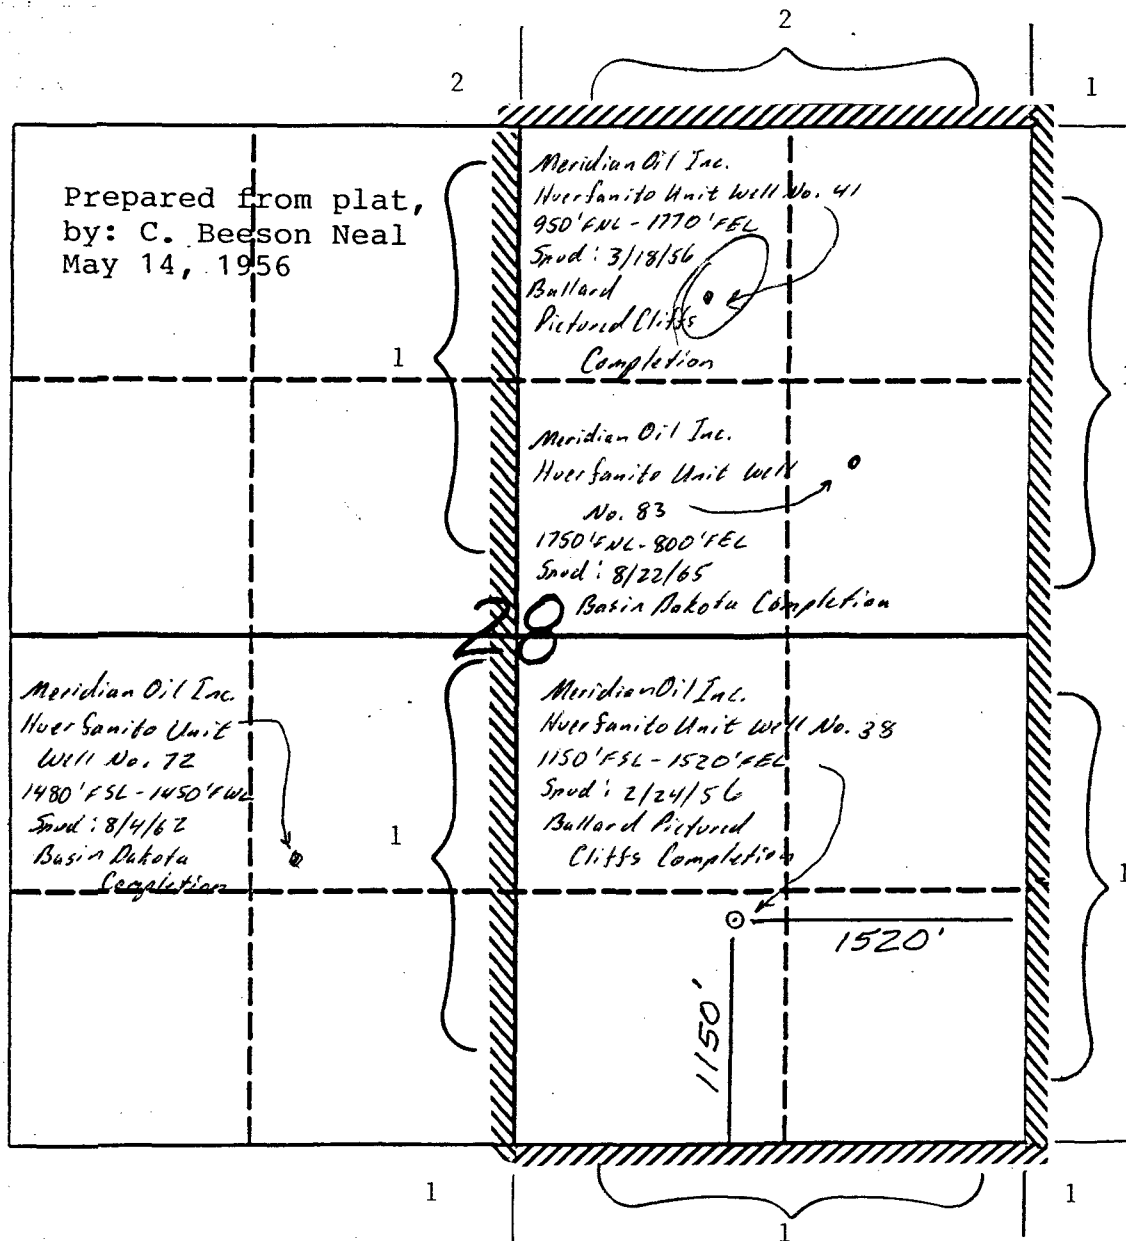 2
2
1
Prepared from plat,
by: C. Beeson Neal
May 14, 1956
Meridian Oil Inc.
Huerfanito Unit Well No. 41
950' FNL - 1770' FEL
Spud: 3/18/56
Ballard
Pictured Cliffs
Completion
1
1
Meridian Oil Inc.
Huerfanito Unit Well
No. 83
1750' FNL - 800' FEL
Spud: 8/22/65
Basin Dakota Completion
28
Meridian Oil Inc.
Huerfanito Unit
Well No. 72
1480' FSL - 1450' FWL
Spud: 8/4/62
Basin Dakota
Completion
1
Meridian Oil Inc.
Huerfanito Unit Well No. 38
1150' FSL - 1520' FEL
Spud: 2/24/56
Ballard Pictured
Cliffs Completion
1
1520'
1150'
1
1
1